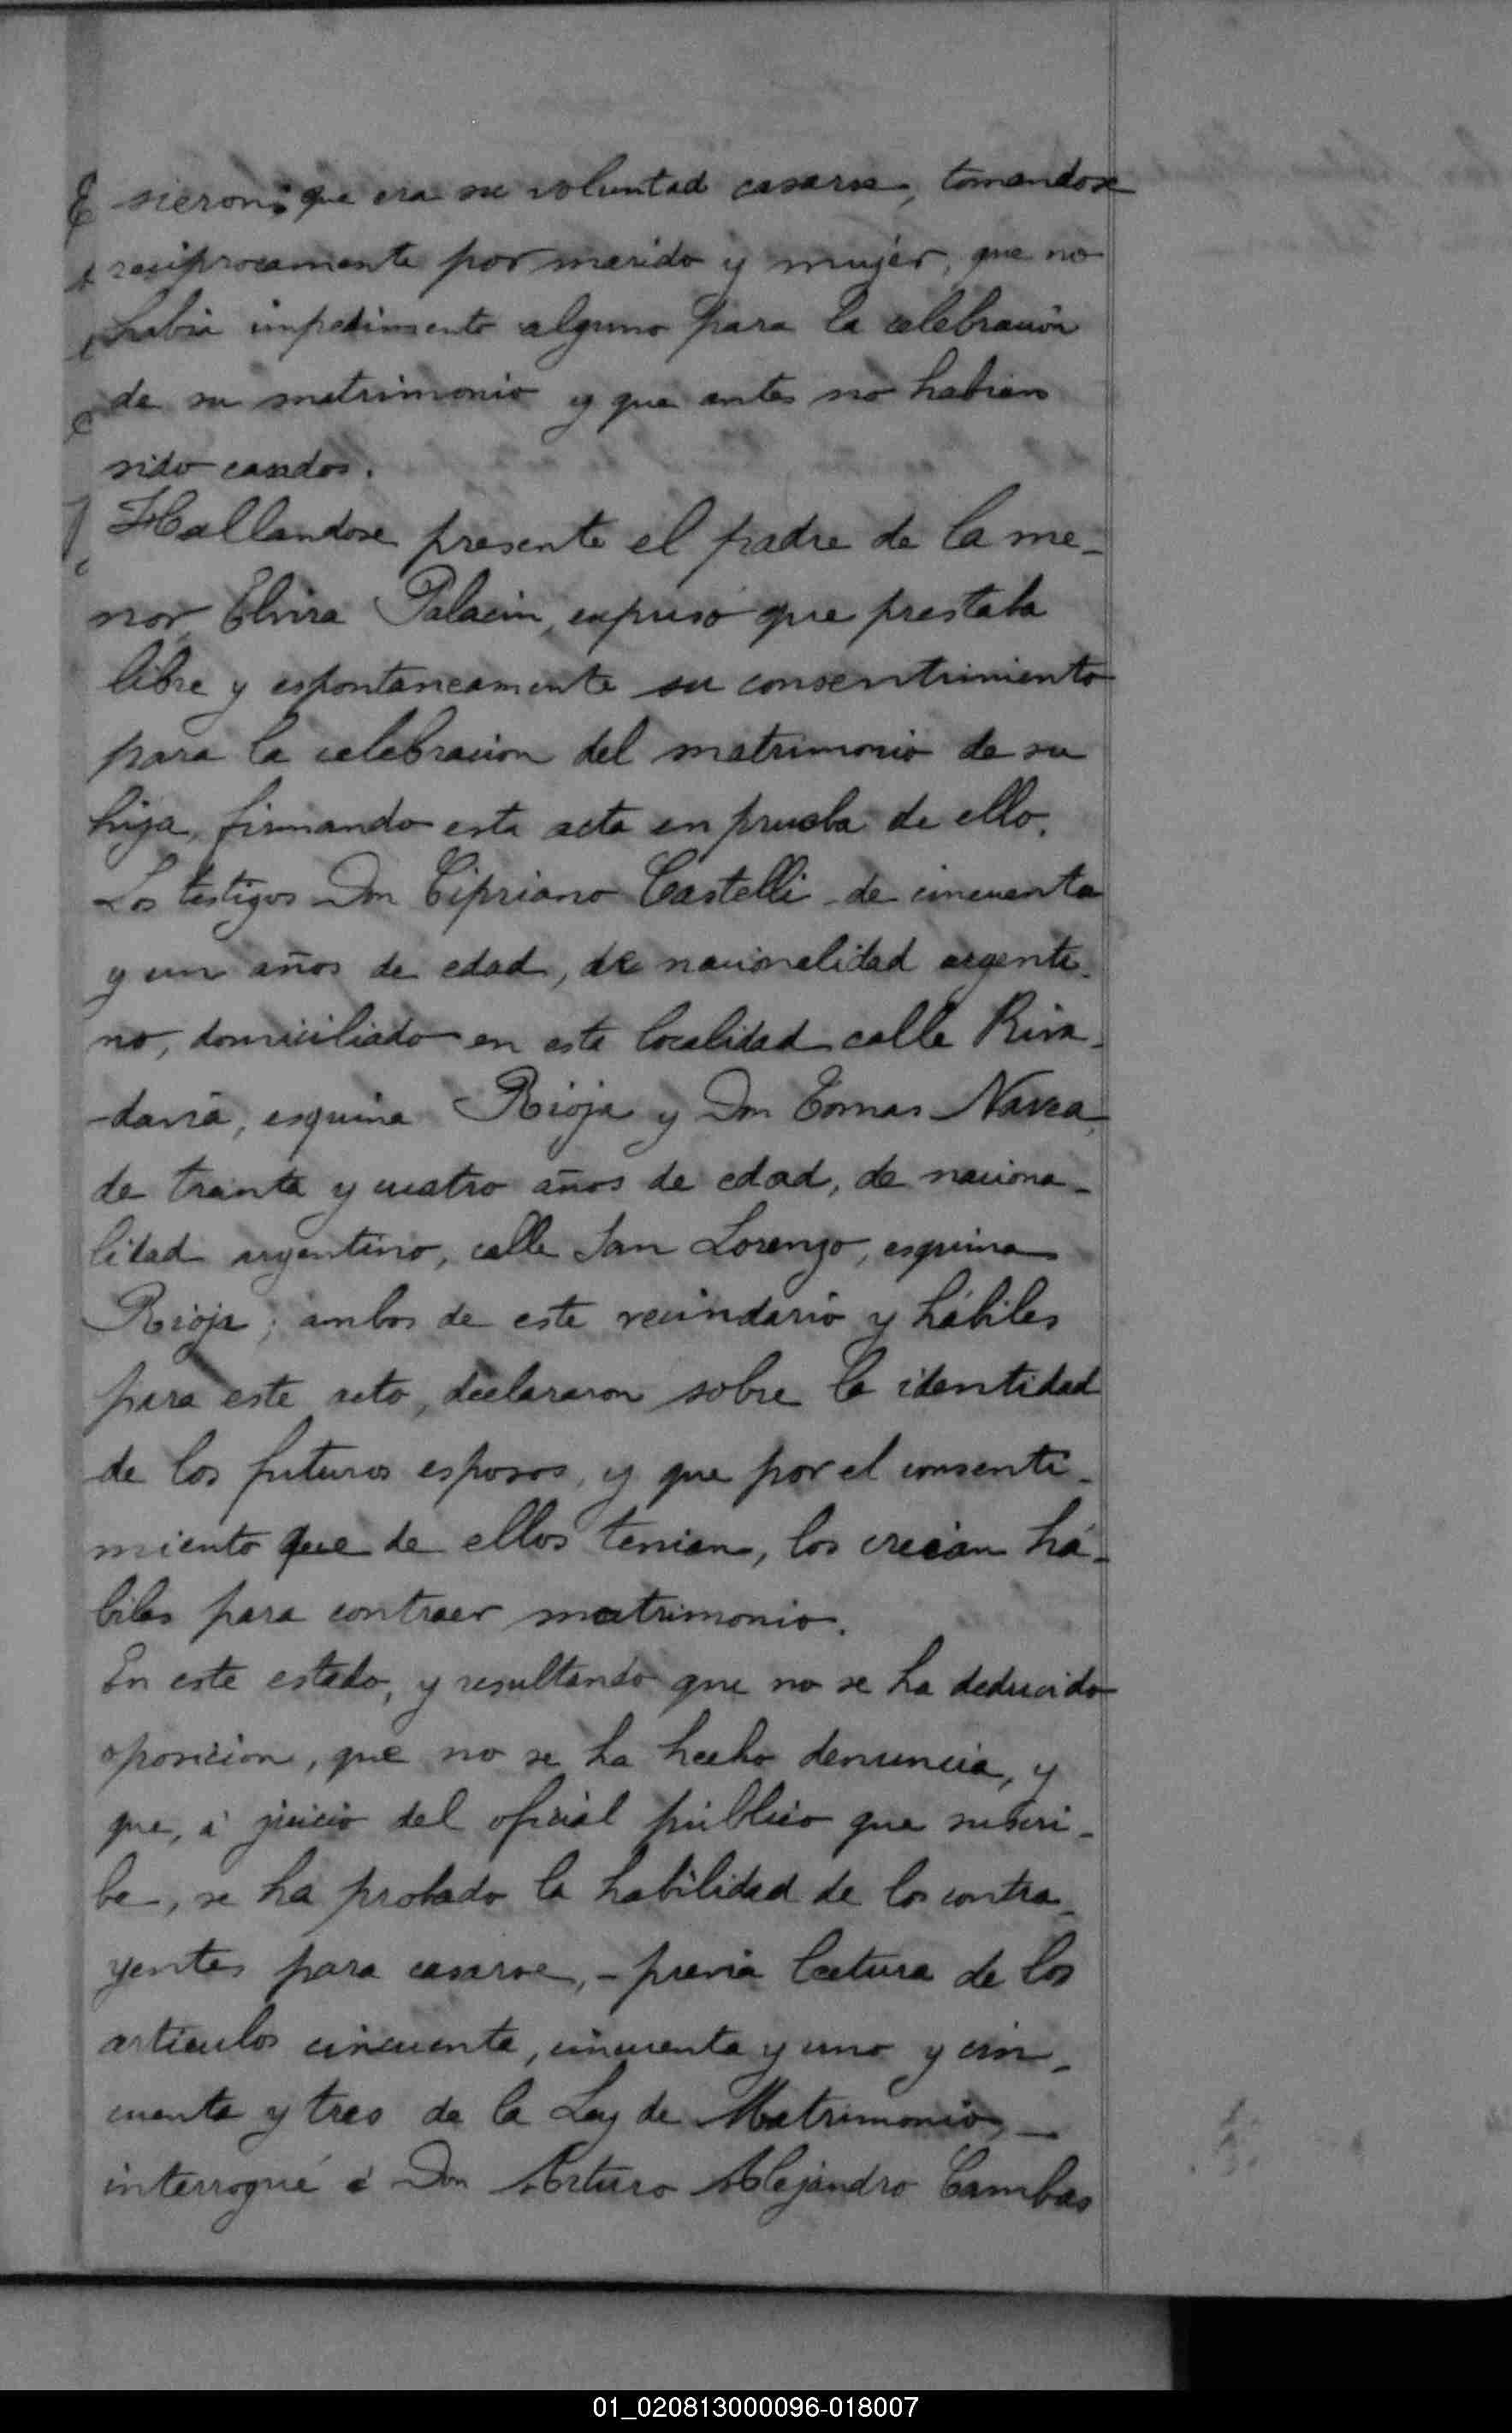 sieron: que era su voluntad casarse, tomandose
reciprocamente por marido y mujer, que no
habia impedimento alguno para la celebración
de su matrimonio y que antes no habian
sido casados.
Hallandose presente el padre de la me-
nor Elvira Palacin, expuso que prestaba
libre y espontaneamente su consentrimiento
para la celebracion del matrimonio de su
hija, firmando esta acta en prueba de ello.
Los testigos Don Cipriano Castelli de cincuenta
y un años de edad, de nacionalidad argenti-
no, domiciliado en esta localidad calle Riva-
-davia, esquina Rioja y Don Tomas
de treinta y cuatro años de edad, de naciona-
lidad argentino, calle San Lorenzo, esquina
Rioja; ambos de este vecindario y hábiles
para este acto, declararon sobre la identidad
de los futuros esposos, y que por el consenti-
miento que de ellos tenian, los creian há-
biles para contraer matrimonio.
En este estado, y resultando que no se ha deducido
oposicion, que no se ha hecho denuncia, y
que, á juicio del oficial público que suscri-
be, se ha probado la habilidad de los contra-
yentes para casarse, - previa lectura de los
artículos cincuenta, cincuenta y uno y cin-
cuenta y tres de la Ley de Matrimonio, -
interrogué á Don Arturo Alejandro Cambas
01_020813000096-018007